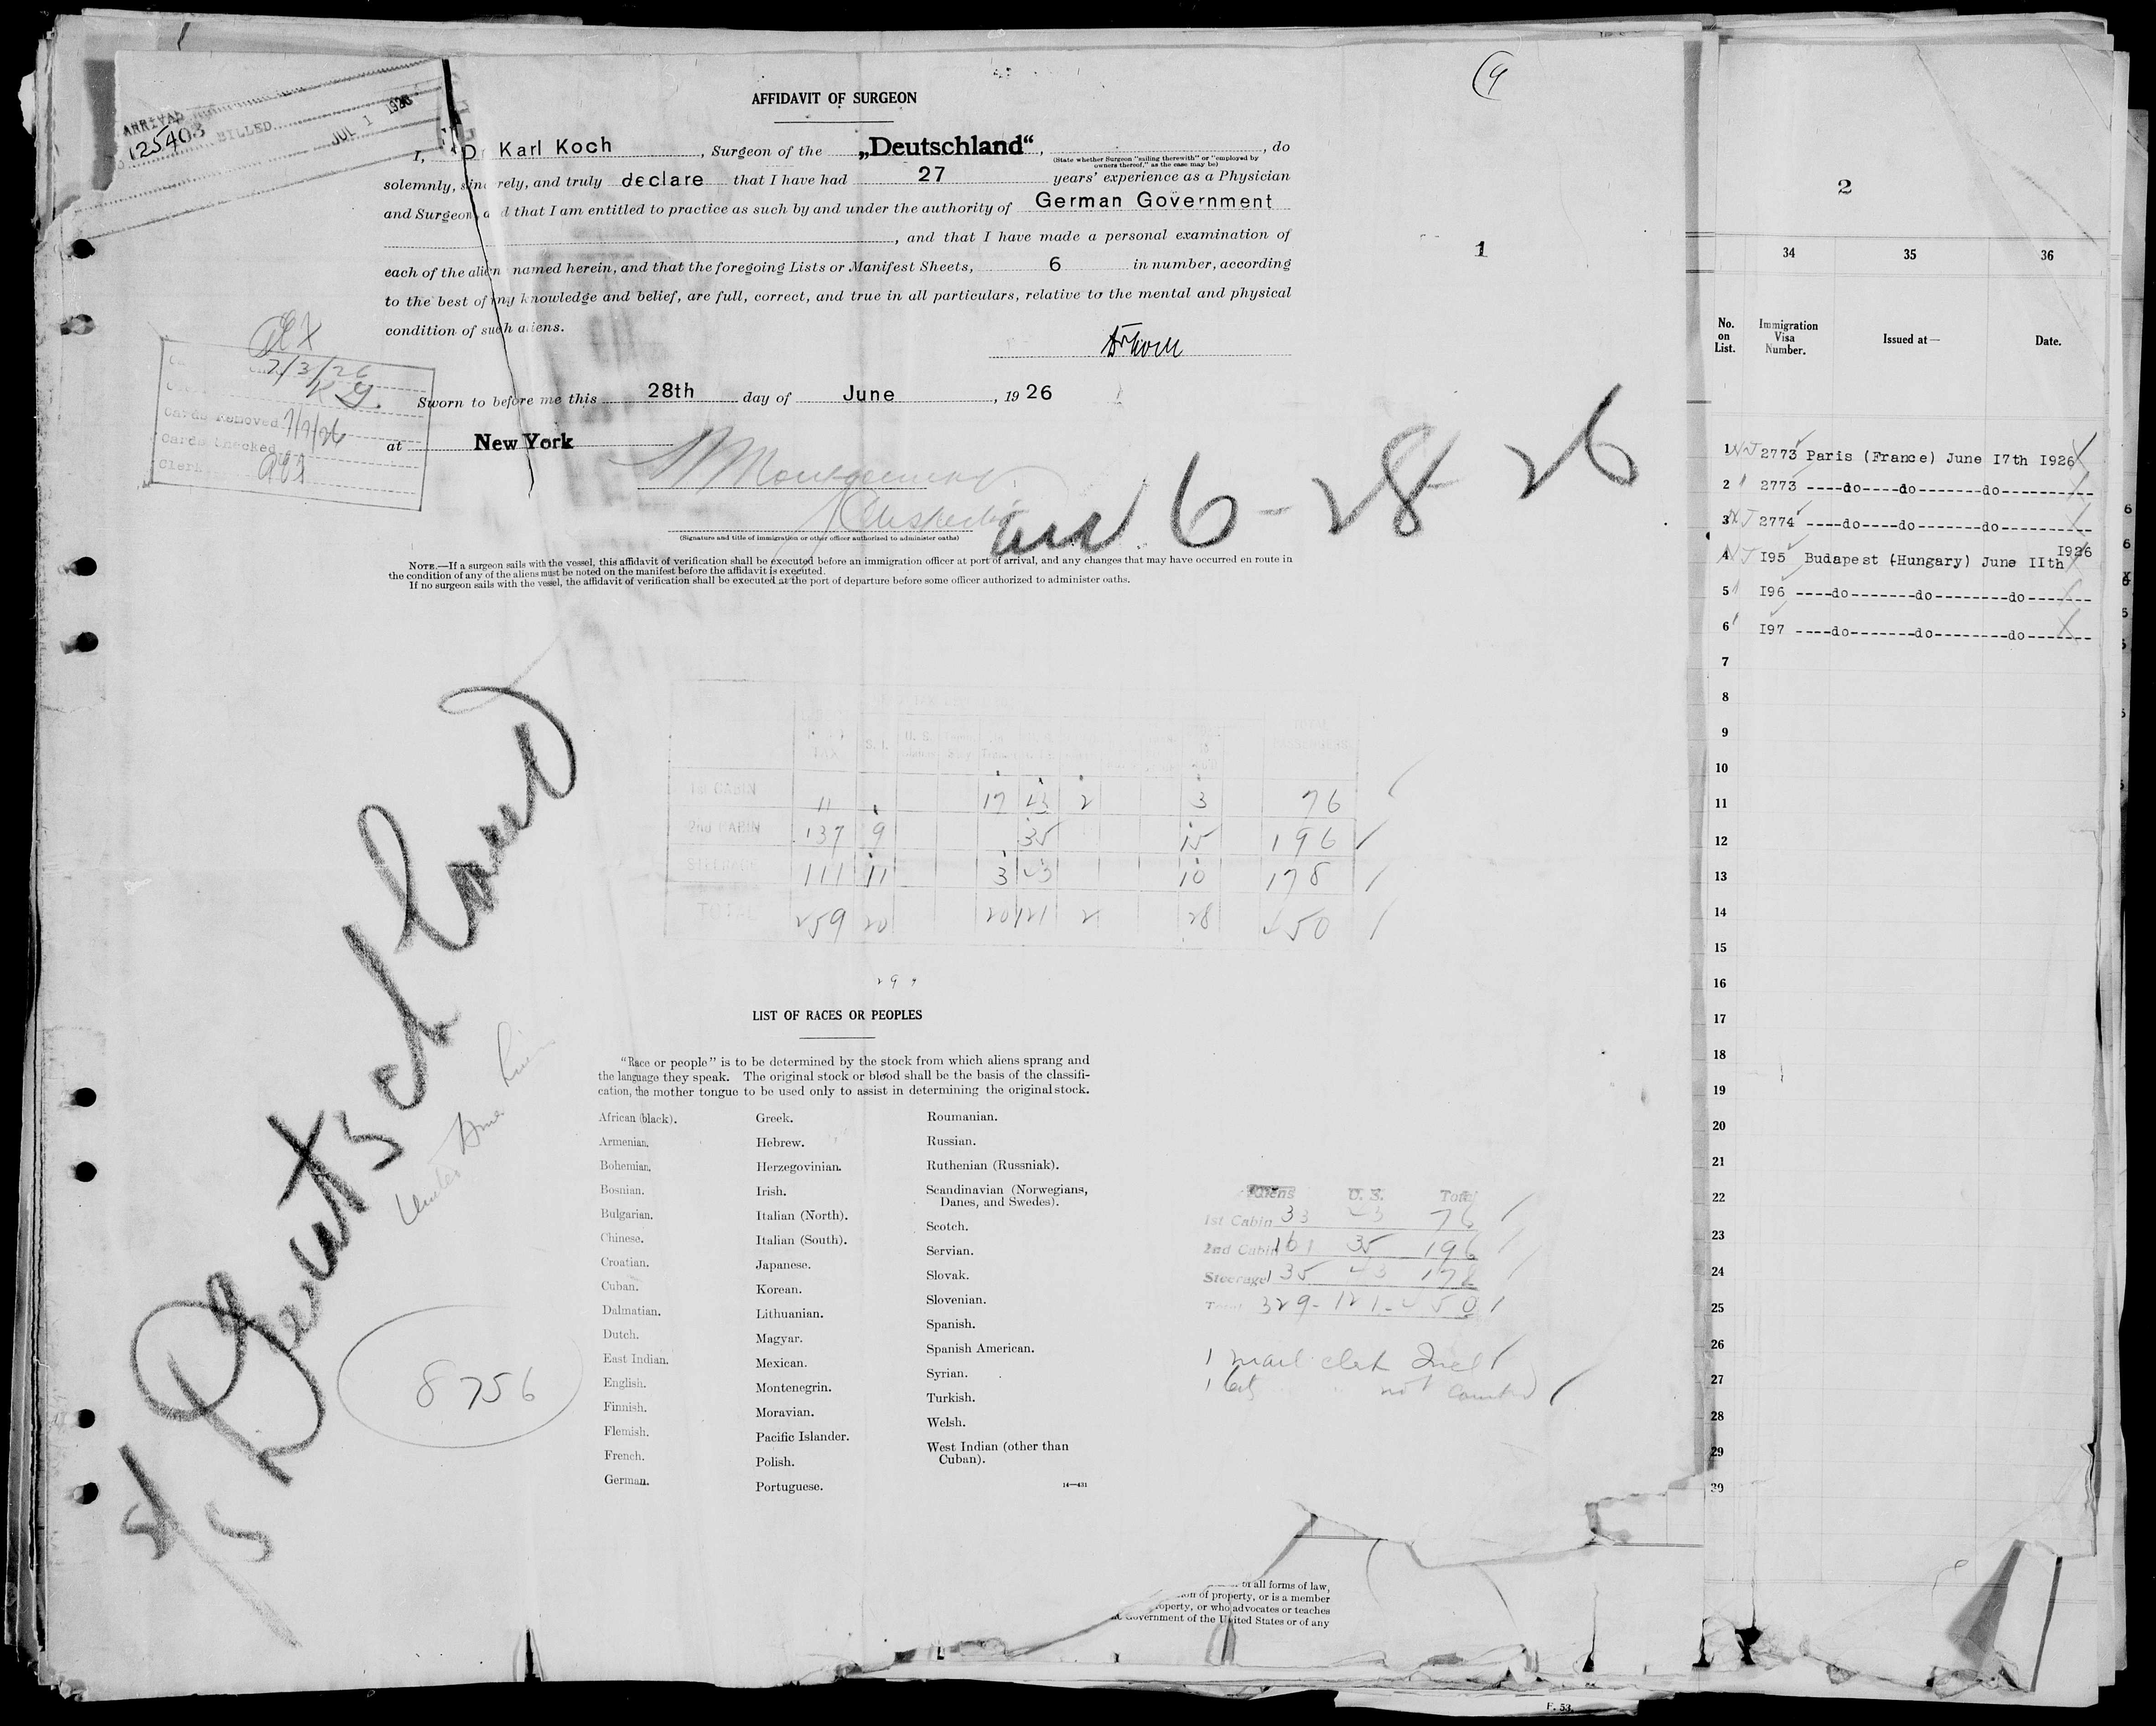 (9
ARRIVAL
125403 BILLED JUL 1 1926
AFFIDAVIT OF SURGEON
I, Dr Karl Koch, Surgeon of the „Deutschland“, , do
(State whether Surgeon "sailing therewith" or "employed by owners thereof," as the case may be)
solemnly, sincerely, and truly declare that I have had 27 years' experience as a Physician
and Surgeon, and that I am entitled to practice as such by and under the authority of German Government
, and that I have made a personal examination of
each of the alien named herein, and that the foregoing Lists or Manifest Sheets, 6 in number, according
to the best of my knowledge and belief, are full, correct, and true in all particulars, relative to the mental and physical
condition of such aliens.
Sworn to before me this 28th day of June, 1926
at New York
(Signature and title of immigration or other officer authorized to administer oaths)
7/3/26
Cards Removed 7/7/26
Cards Checked
Clerk
6-28-26
NOTE.—If a surgeon sails with the vessel, this affidavit of verification shall be executed before an immigration officer at port of arrival, and any changes that may have occurred en route in
the condition of any of the aliens must be noted on the manifest before the affidavit is executed.
If no surgeon sails with the vessel, the affidavit of verification shall be executed at the port of departure before some officer authorized to administer oaths.
1
TAX S. I. U. S.
1st CABIN 11 17 43 2 3 76
2nd CABIN 137 9 35 15 196
STEERAGE 111 11 3 43 10 178
TOTAL 259 20 20 121 2 28 450
S/S Deutschland
8756
LIST OF RACES OR PEOPLES
"Race or people" is to be determined by the stock from which aliens sprang and
the language they speak. The original stock or blood shall be the basis of the classifi-
cation, the mother tongue to be used only to assist in determining the original stock.
African (black).
Armenian.
Bohemian.
Bosnian.
Bulgarian.
Chinese.
Croatian.
Cuban.
Dalmatian.
Dutch.
East Indian.
English.
Finnish.
Flemish.
French.
German.
Greek.
Hebrew.
Herzegovinian.
Irish.
Italian (North).
Italian (South).
Japanese.
Korean.
Lithuanian.
Magyar.
Mexican.
Montenegrin.
Moravian.
Pacific Islander.
Polish.
Portuguese.
Roumanian.
Russian.
Ruthenian (Russniak).
Scandinavian (Norwegians,
Danes, and Swedes).
Scotch.
Servian.
Slovak.
Slovenian.
Spanish.
Spanish American.
Syrian.
Turkish.
Welsh.
West Indian (other than
Cuban).
14—431
Aliens U. S. Total
1st Cabin 33 43 76
2nd Cabin 161 35 196
Steerage 135 43 178
Total 329-121-450
1 mail clerk Incl
not counted
of all forms of law,
of property, or is a member
property, or who advocates or teaches
Government of the United States or of any
2
34 35 36
No. on List. Immigration Visa Number. Issued at— Date.
1 2773 Paris (France) June 17th 1926
2 2773 ----do----do-------do----------
3 2774 ----do----do-------do----------
4 195 Budapest (Hungary) June IIth 1926
5 196 ----do-------do--------do-------
6 197 ----do-------do--------do-------
7
8
9
10
11
12
13
14
15
16
17
18
19
20
21
22
23
24
25
26
27
28
29
30
F. 53.